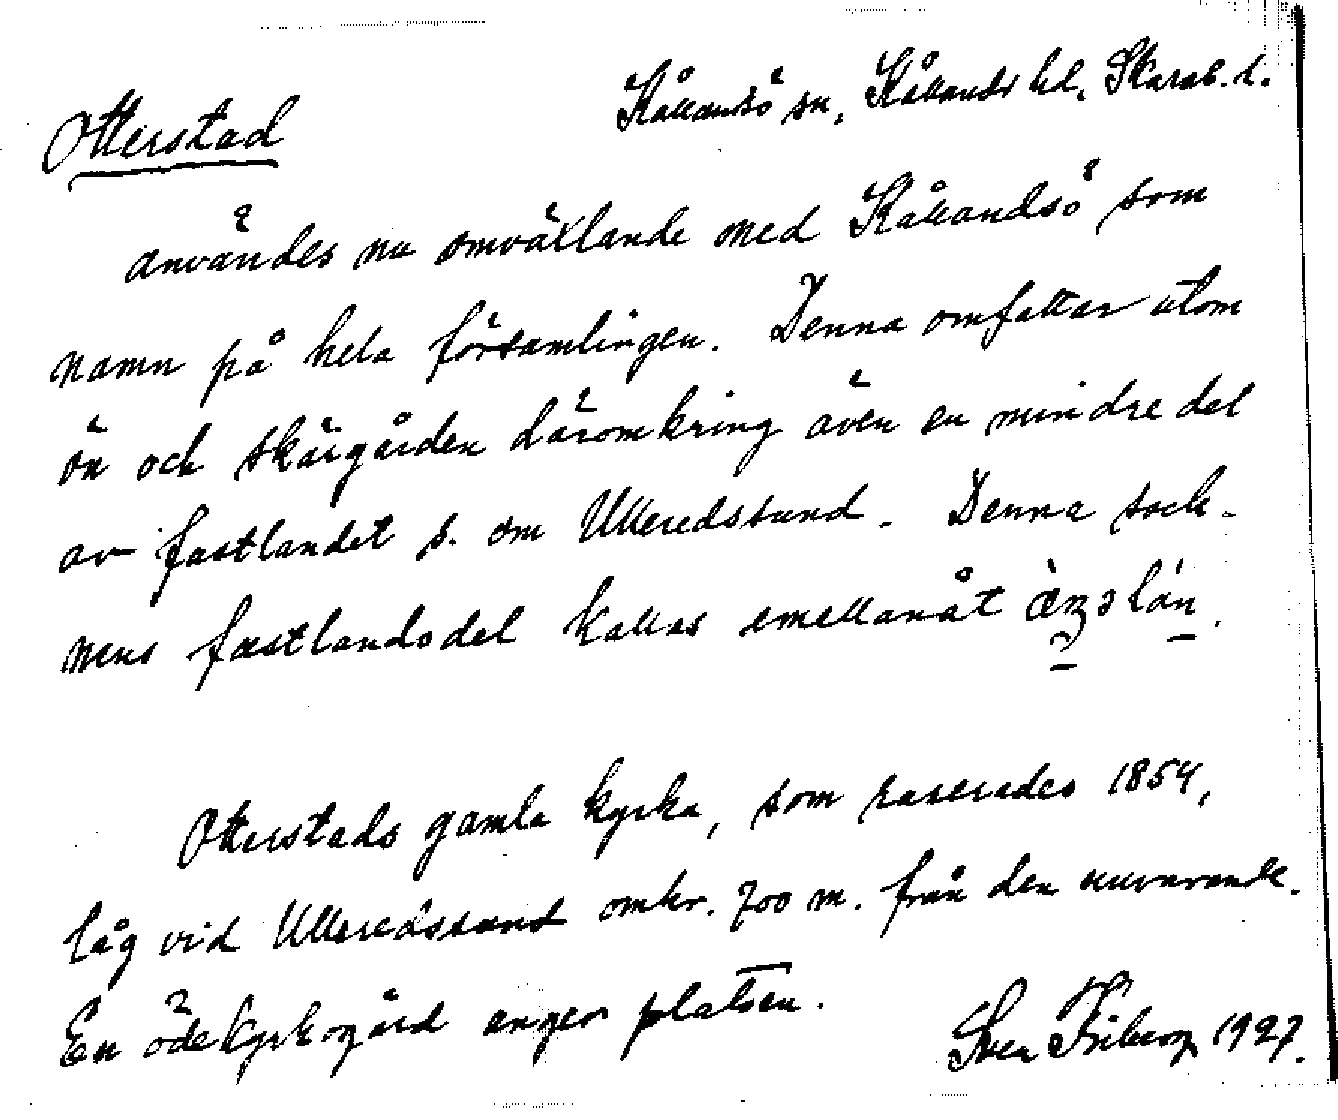 Kållandsö sn, Kållands hd, Skarab. l.
Otterstad
användes nu omväxlande med Kållandsö som
namn på hela församlingen. Denna omfattar utom
ön och skärgården däromkring även en mindre del
av fastlandet s. om Ulleredssund. Denna sock-
nens fastlandsdel kallas emellanåt
Otterstads gamla kyrka, som raserades 1854,
låg vid Ulleredssund omkr. 700 m. från den nuvarande.
En ödekyrkogård anger platsen.
Sven Friberg 1927.